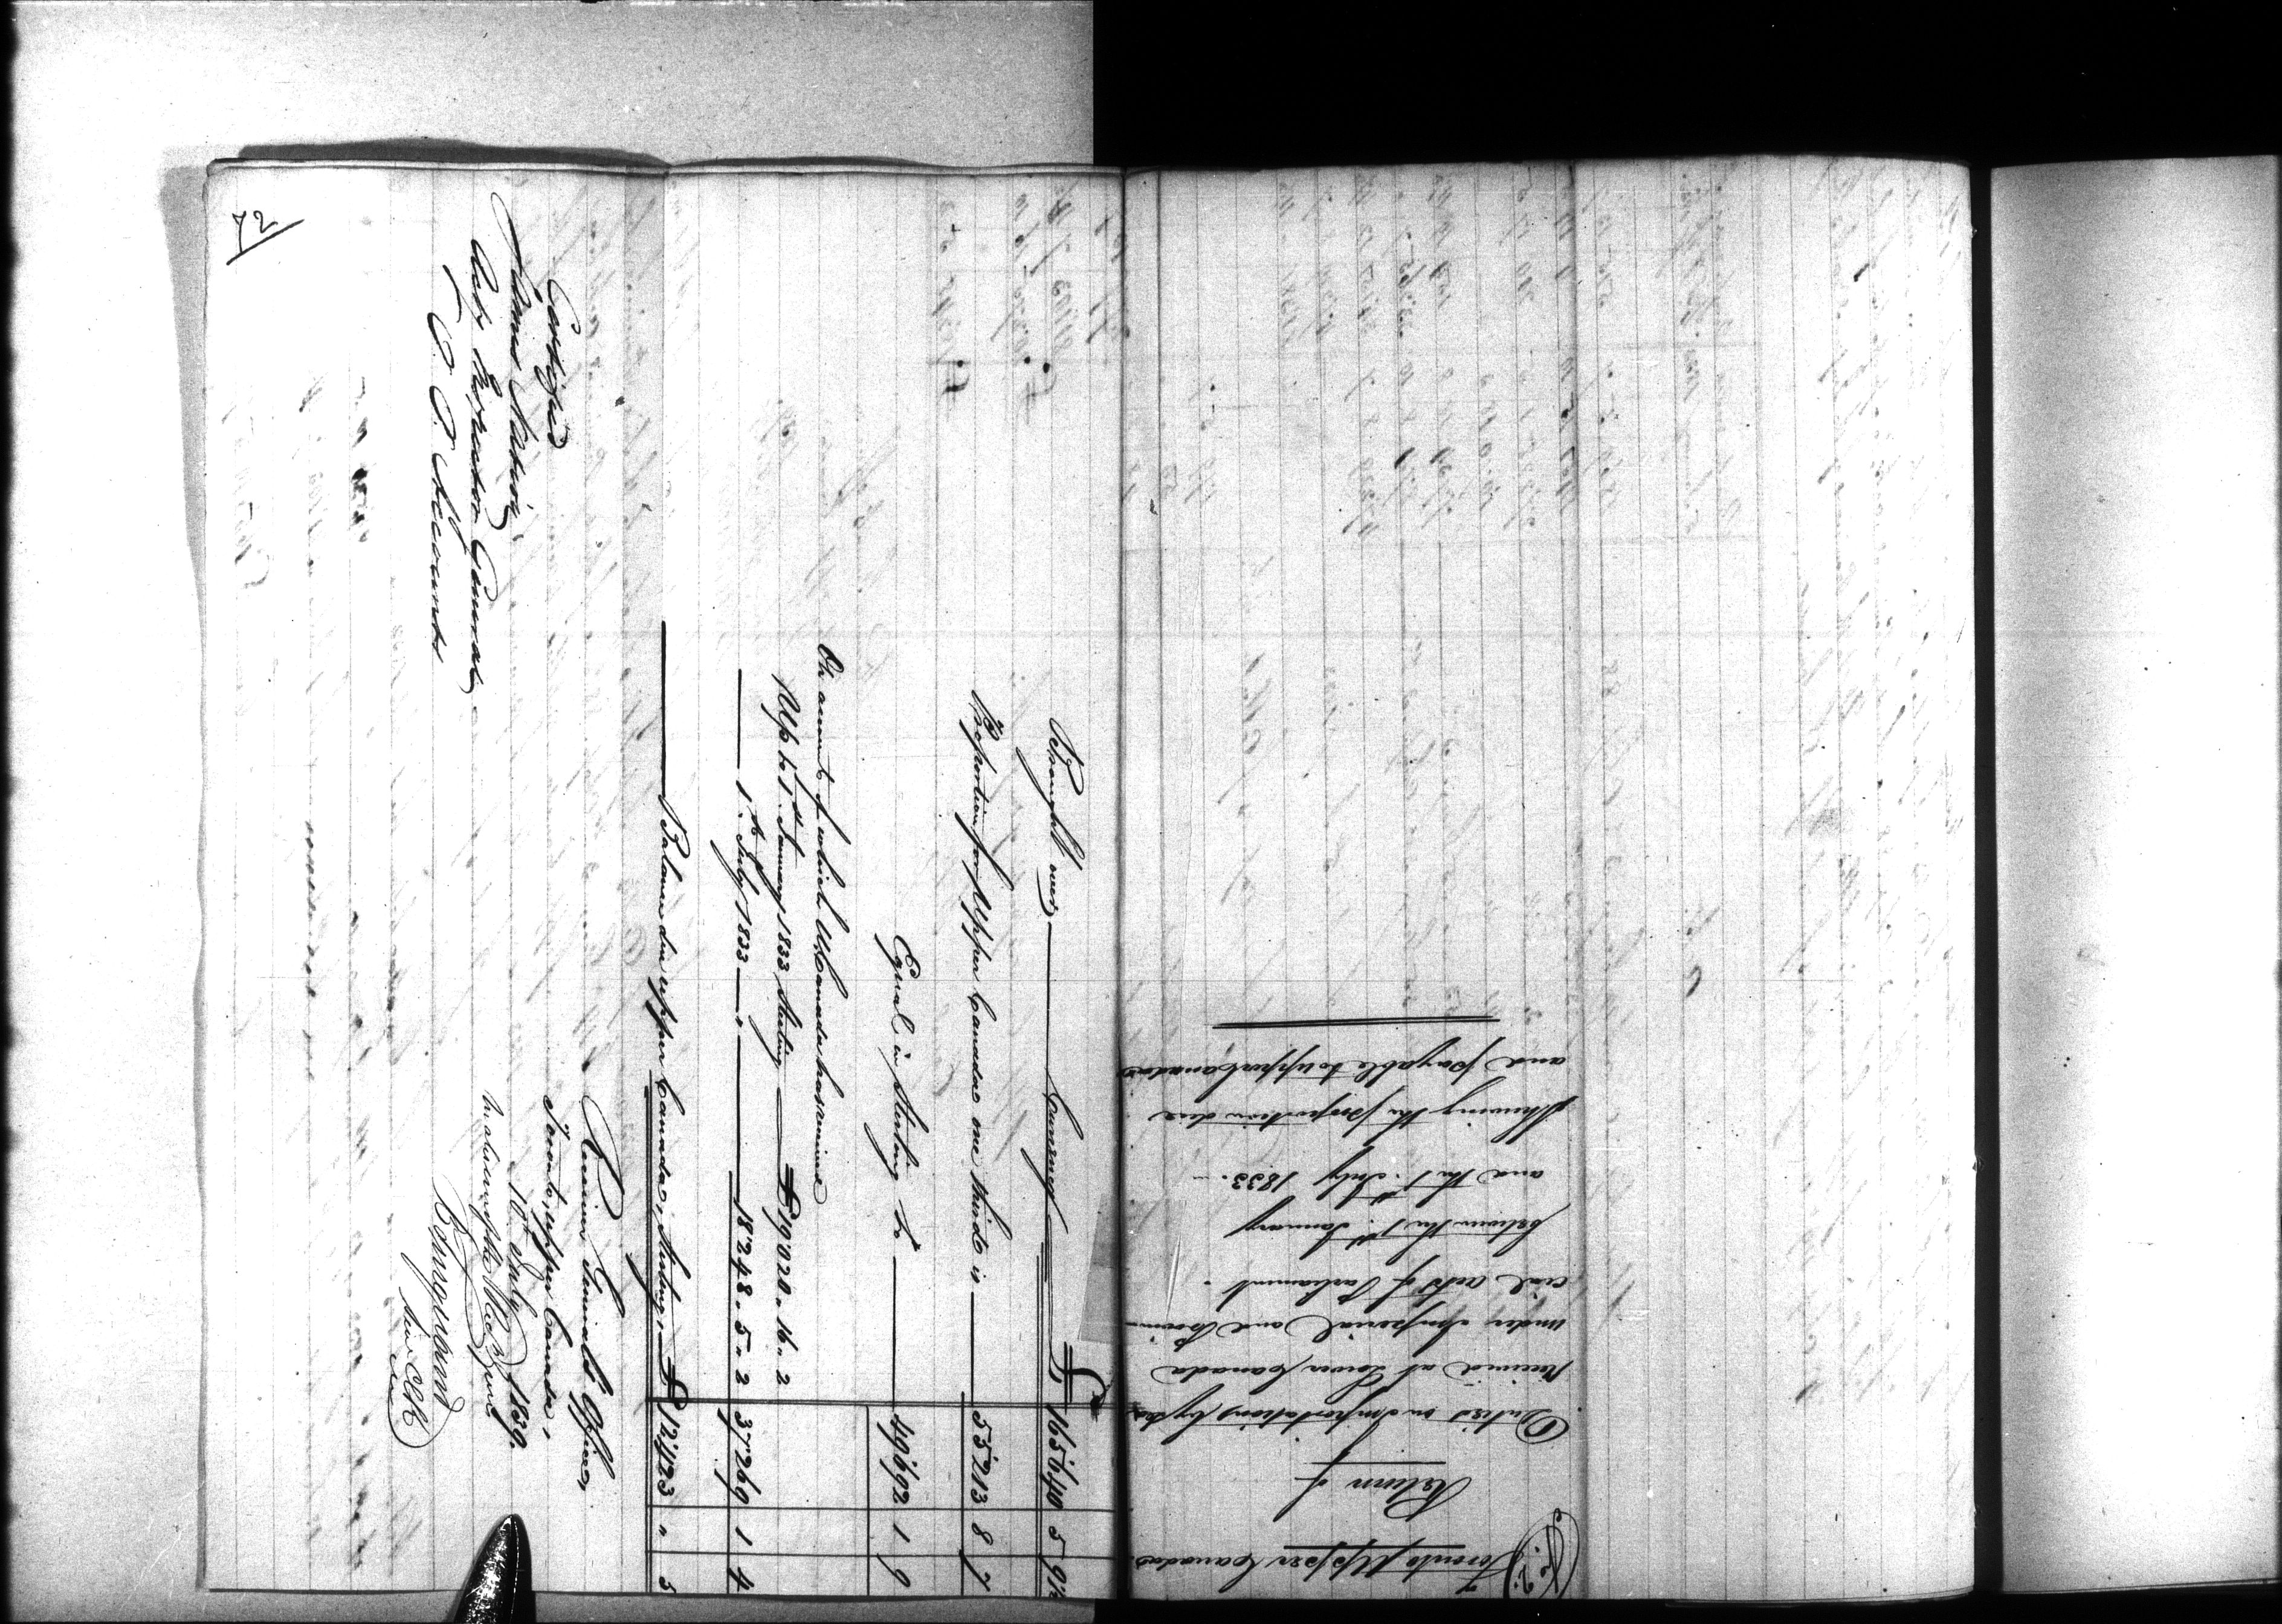 Brought over Currency £ 165640 5 9½
Proportion for Upper Canada one third is 55213 8 7
Equal in Sterling to 49692 1 9
On account of which U. Canada has received
Up to 1st January 1833, Sterling £19020 " 16 " 2
1st July 1833 " 18248 " 5 " 2 37269 1 4
Balance due upper Canada, Sterling, £ 12423 " 5
Receiver General's Office,
Toronto, upper Canada,
10th July 1839.
Certified
James Nation
Acty Inspector General
P. P. Accounts
72
No. 2.
Toronto Upper Canada
Return of
Duties on Importations by sea
Received at Lower Canada
under Imperial and Provin-
cial Acts of Parliament
between the 1st January
and the 1st July 1833.
Shewing the proportion due
and payable to upper Canada